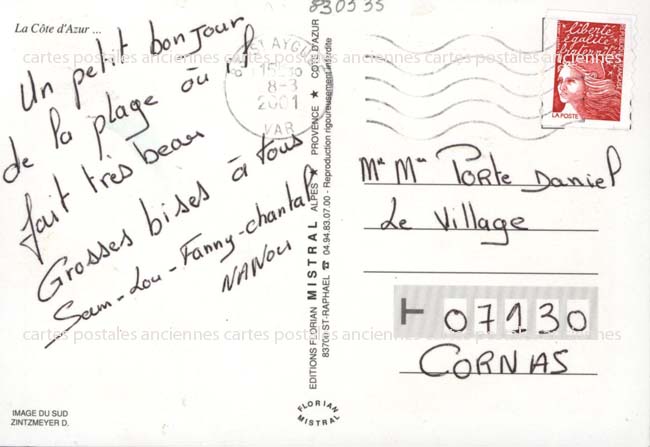 830335
La Côte d'Azur ...
Un petit bonjour
de la plage ou il
fait très beau
Grosses bises à tous
Seum-Lou-Fanny-chantal
NANOU
AYGU
8-3
2001
VAR
liberté
égalité
fraternité
LA POSTE
Mr Mme PORTE Daniel
Le Village
07130
CORNAS
EDITIONS FLORIAN MISTRAL ALPES ★ PROVENCE ★ COTE D'AZUR
83700 ST-RAPHAEL ☎ 04.94.83.07.00 - Reproduction rigoureusement interdite
FLORIAN
MISTRAL
IMAGE DU SUD
ZINTZMEYER D.
cartes postales anciennes cartes postales anciennes cartes postales anciennes
cartes postales anciennes cartes postales anciennes cartes postales anciennes
cartes postales anciennes cartes postales anciennes cartes postales anciennes